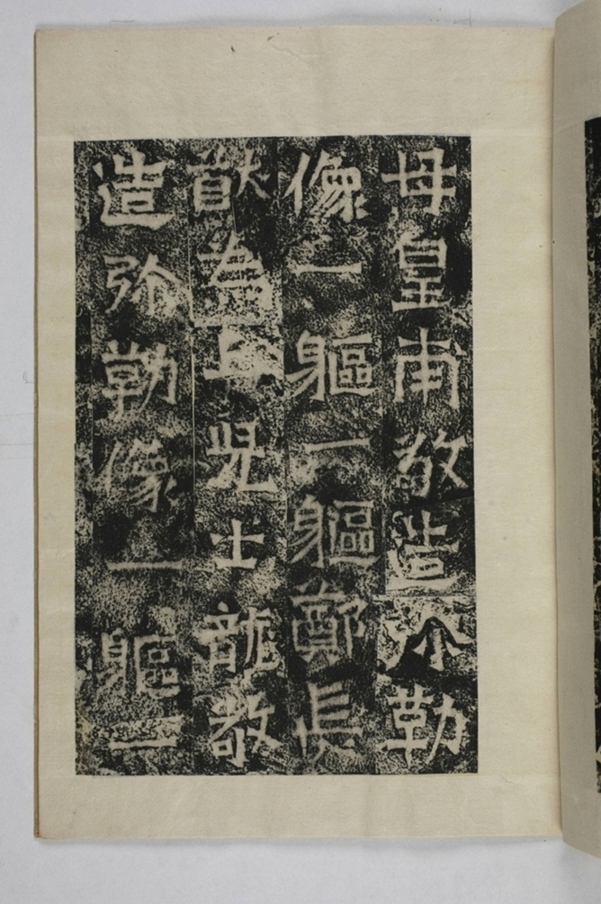 母皇甫敬造弥勒
像一軀一軀鄭長
猷為亡兒士龍敬
造弥勒像一軀一